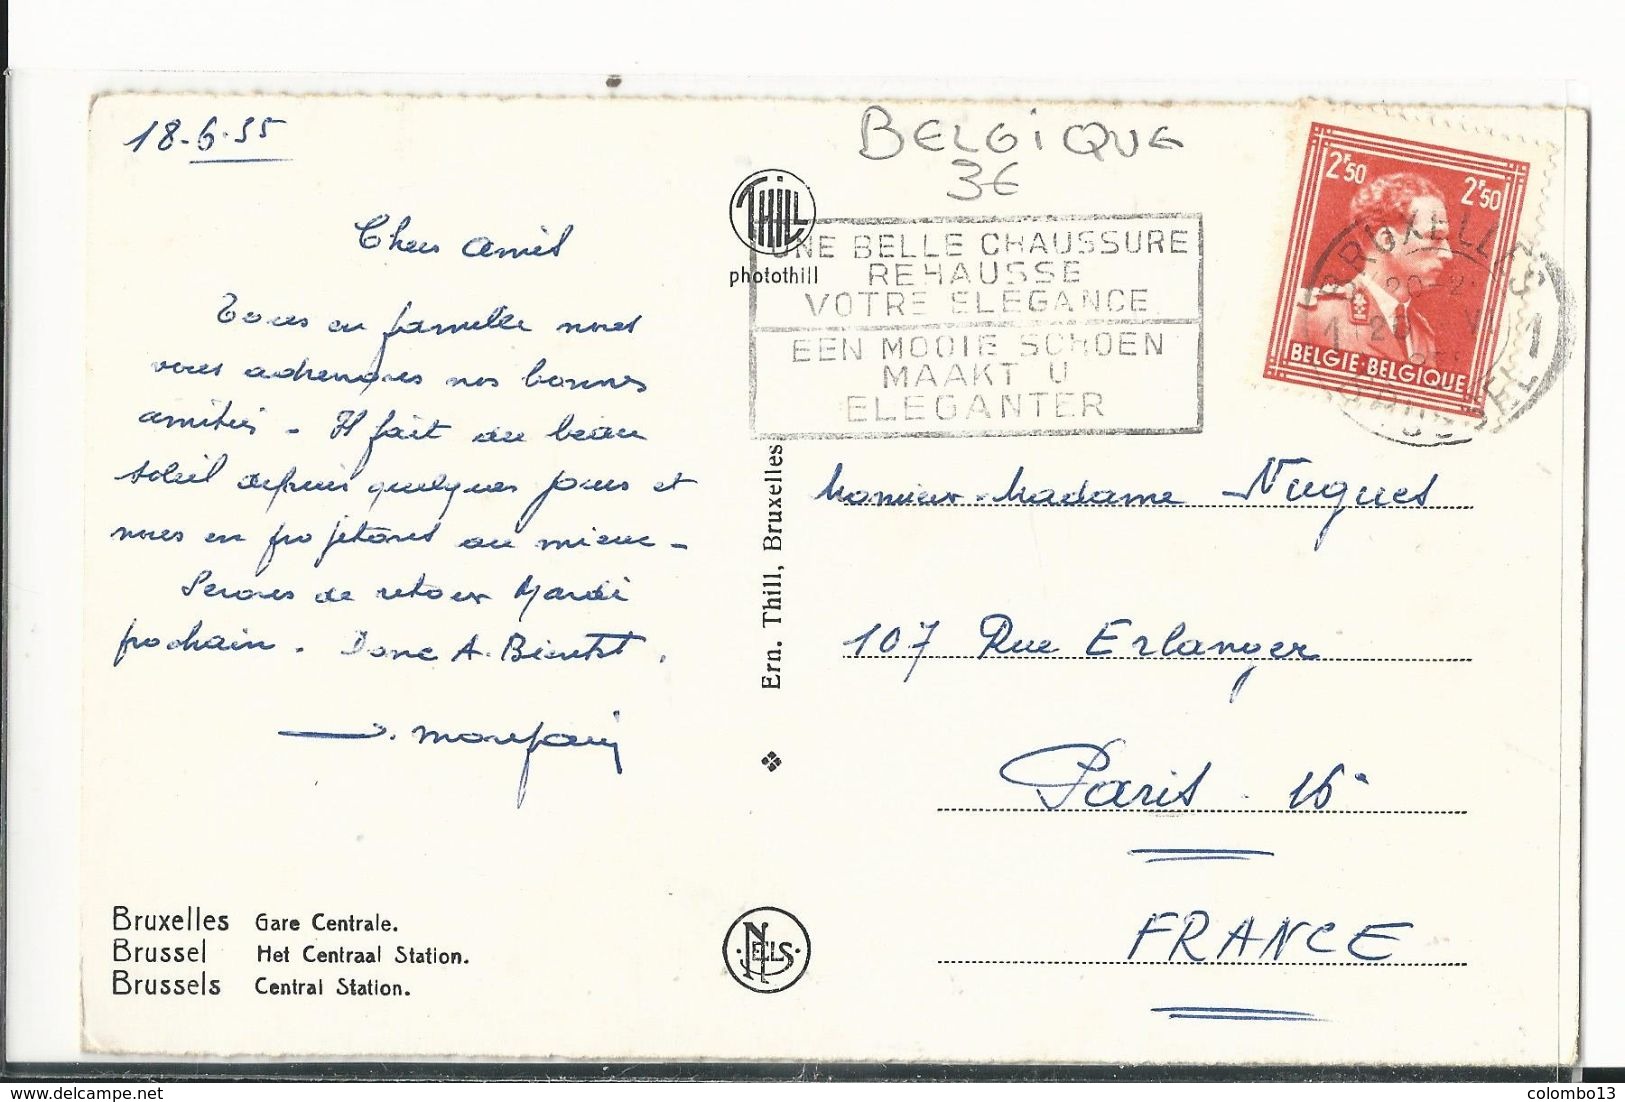 18-6-55
BELGIQUE
3€
Chers amis
Tous en famille nous
vous adressons nos bonnes
amitiés - Il fait du beau
soleil depuis quelques jours et
nous en profitons au mieux -
Serons de retour Mardi
prochain. Donc A. Bientôt.
THILL
photothill
UNE BELLE CHAUSSURE
REHAUSSE
VOTRE ELEGANCE
EEN MOOIE SCHOEN
MAAKT U
ELEGANTER
2F50 2F50
BELGIE·BELGIQUE
BRUXELLES
1 1
BRUSSEL
Ern. Thill, Bruxelles
Monsieur-Madame Nugues
107 Rue Erlanger
Paris - 16e
FRANCE
Bruxelles Gare Centrale.
Brussel Het Centraal Station.
Brussels Central Station.
NELS
delcampe.net
colombo13